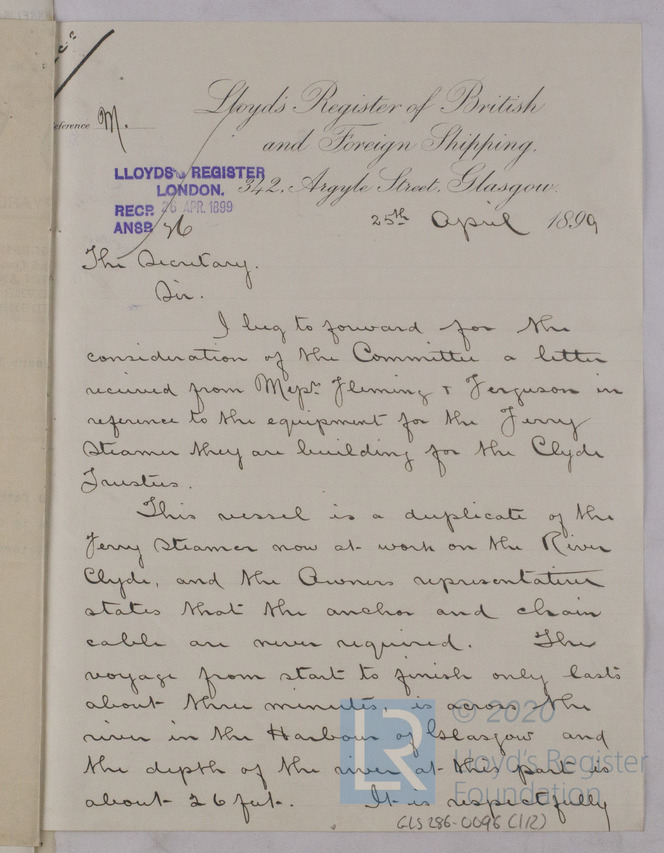 Reference M.
Lloyd's Register of British
and Foreign Shipping,
342, Argyle Street, Glasgow.
LLOYDS REGISTER
LONDON.
RECP. 26 APR. 1899
ANSD
25th April 1899
The Secretary.
Sir.
I beg to forward for the
consideration of the Committee a letter
received from Messrs. Fleming & Ferguson in
reference to the equipment for the Ferry
Steamer they are building for the Clyde
Trustees.
This vessel is a duplicate of the
Ferry Steamer now at work on the River
Clyde, and the Owners representative
states that the anchor and chain
cable are never required. The
voyage from start to finish only lasts
about three minutes, is across the
river in the Harbour of Glasgow and
the depth of the river at this part is
about 26 feet. It is respectfully
GLS286-0096 (1/2)
LR
© 2020
Lloyd's Register
Foundation